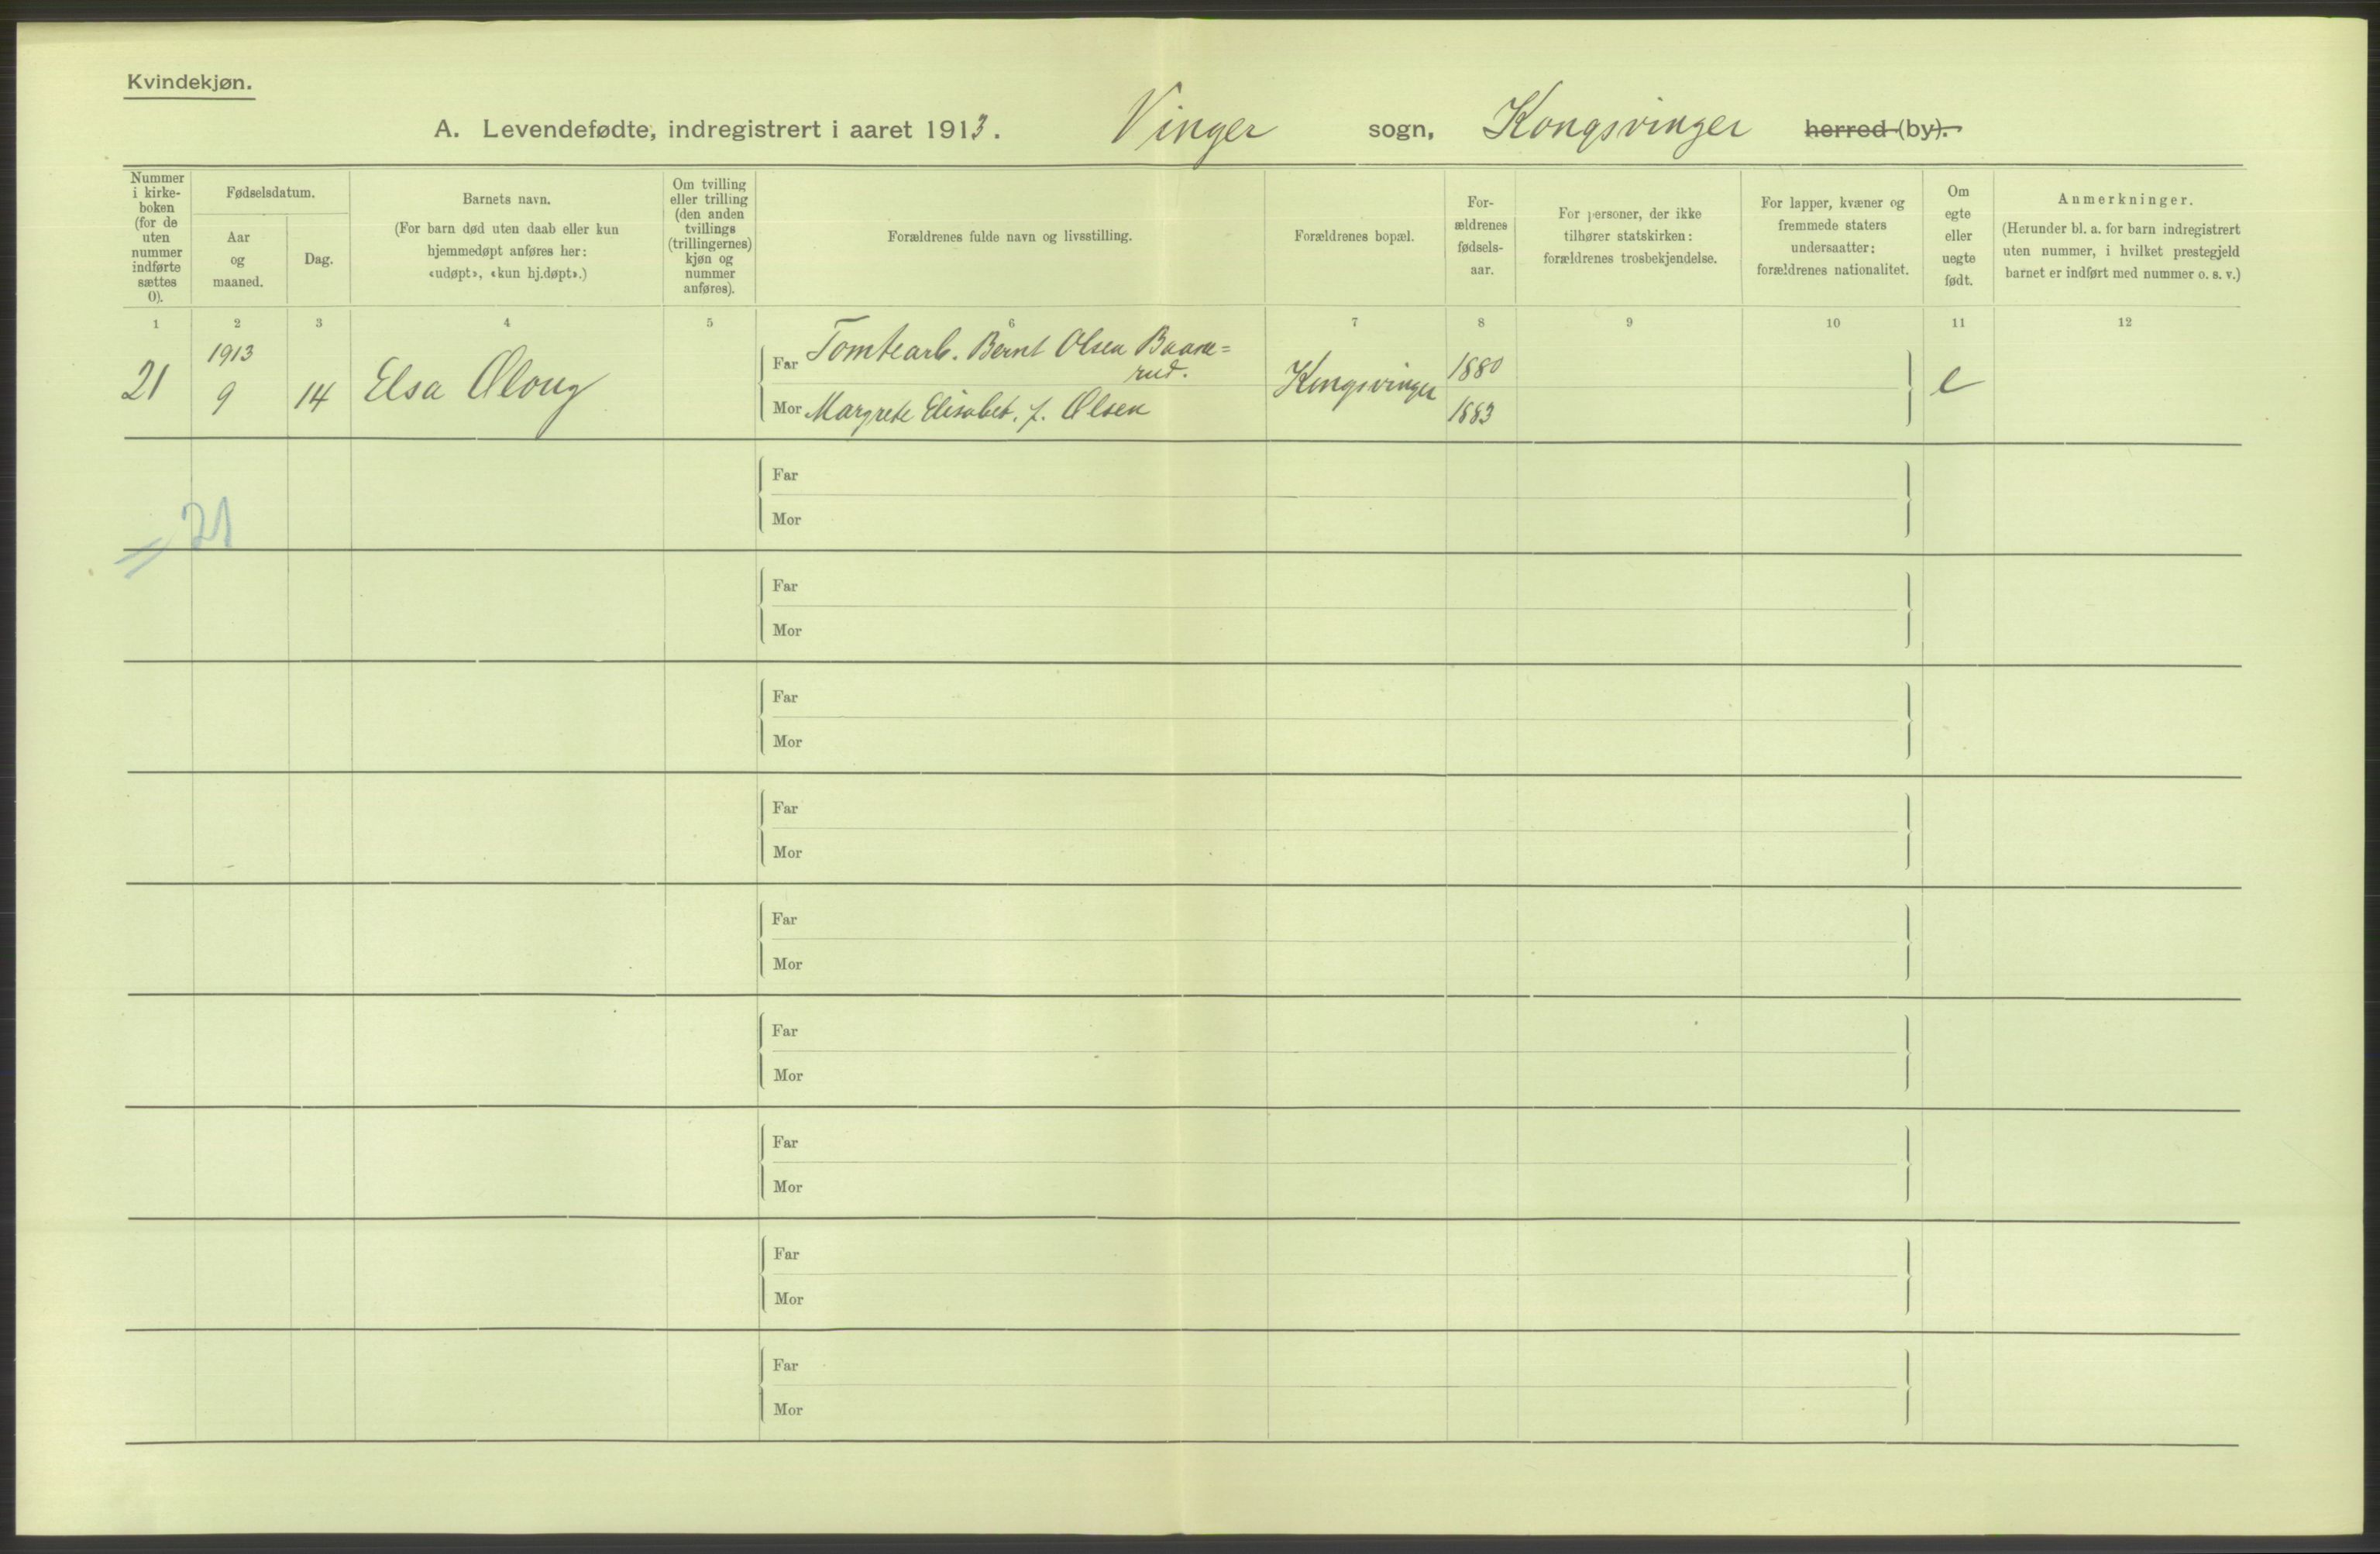 Kvindekjøn.
A. Levendefødte, indregistrert i aaret 1913. Vinger sogn, Kongsvinger herred (by).
Nummer i kirke-boken (for de uten nummer indførte sættes 0).
Fødselsdatum.
Aar og maaned.
Dag.
Barnets navn.
(For barn død uten daab eller kun hjemmedøpt anføres her: «udøpt», «kun hj.døpt».)
Om tvilling eller trilling (den anden tvillings (trillingernes) kjøn og nummer anføres).
Forældrenes fulde navn og livsstilling.
Forældrenes bopæl.
For-ældrenes fødsels-aar.
For personer, der ikke tilhører statskirken: forældrenes trosbekjendelse.
For lapper, kvæner og fremmede staters undersaatter: forældrenes nationalitet.
Om egte eller uegte født.
Anmerkninger.
(Herunder bl. a. for barn indregistrert uten nummer, i hvilket prestegjeld barnet er indført med nummer o. s. v.)
1 2 3 4 5 6 7 8 9 10 11 12
21 1913 9 14 Elsa Oloug
Far Tomtearb. Bernt Olsen Baane=
rud.
Kongsvinger 1880 e
Mor Margrete Elisabet, f. Olsen 1883
Far
Mor
= 21
Far
Mor
Far
Mor
Far
Mor
Far
Mor
Far
Mor
Far
Mor
Far
Mor
Far
Mor